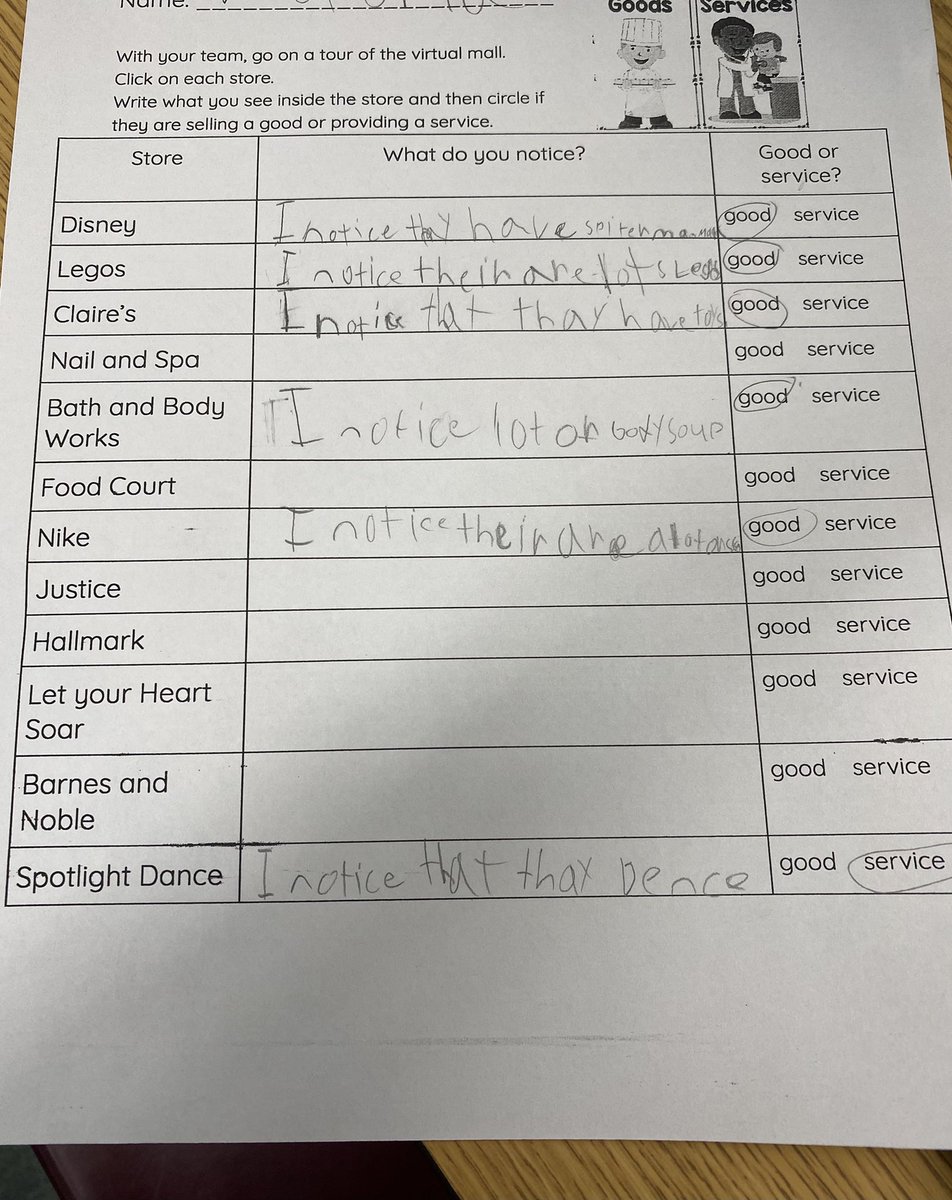 Name:
Goods Services
With your team, go on a tour of the virtual mall.
Click on each store.
Write what you see inside the store and then circle if
they are selling a good or providing a service.
Store What do you notice? Good or
service?
Disney I notice thay have spitenman good service
Legos I notice their are lots Legos good service
Claire's I notice that thay have toys good service
Nail and Spa good service
Bath and Body
Works I notice lot on body soup good service
Food Court good service
Nike I notice their are alot good service
Justice good service
Hallmark good service
Let your Heart
Soar good service
Barnes and
Noble good service
Spotlight Dance I notice that thay Dence good service